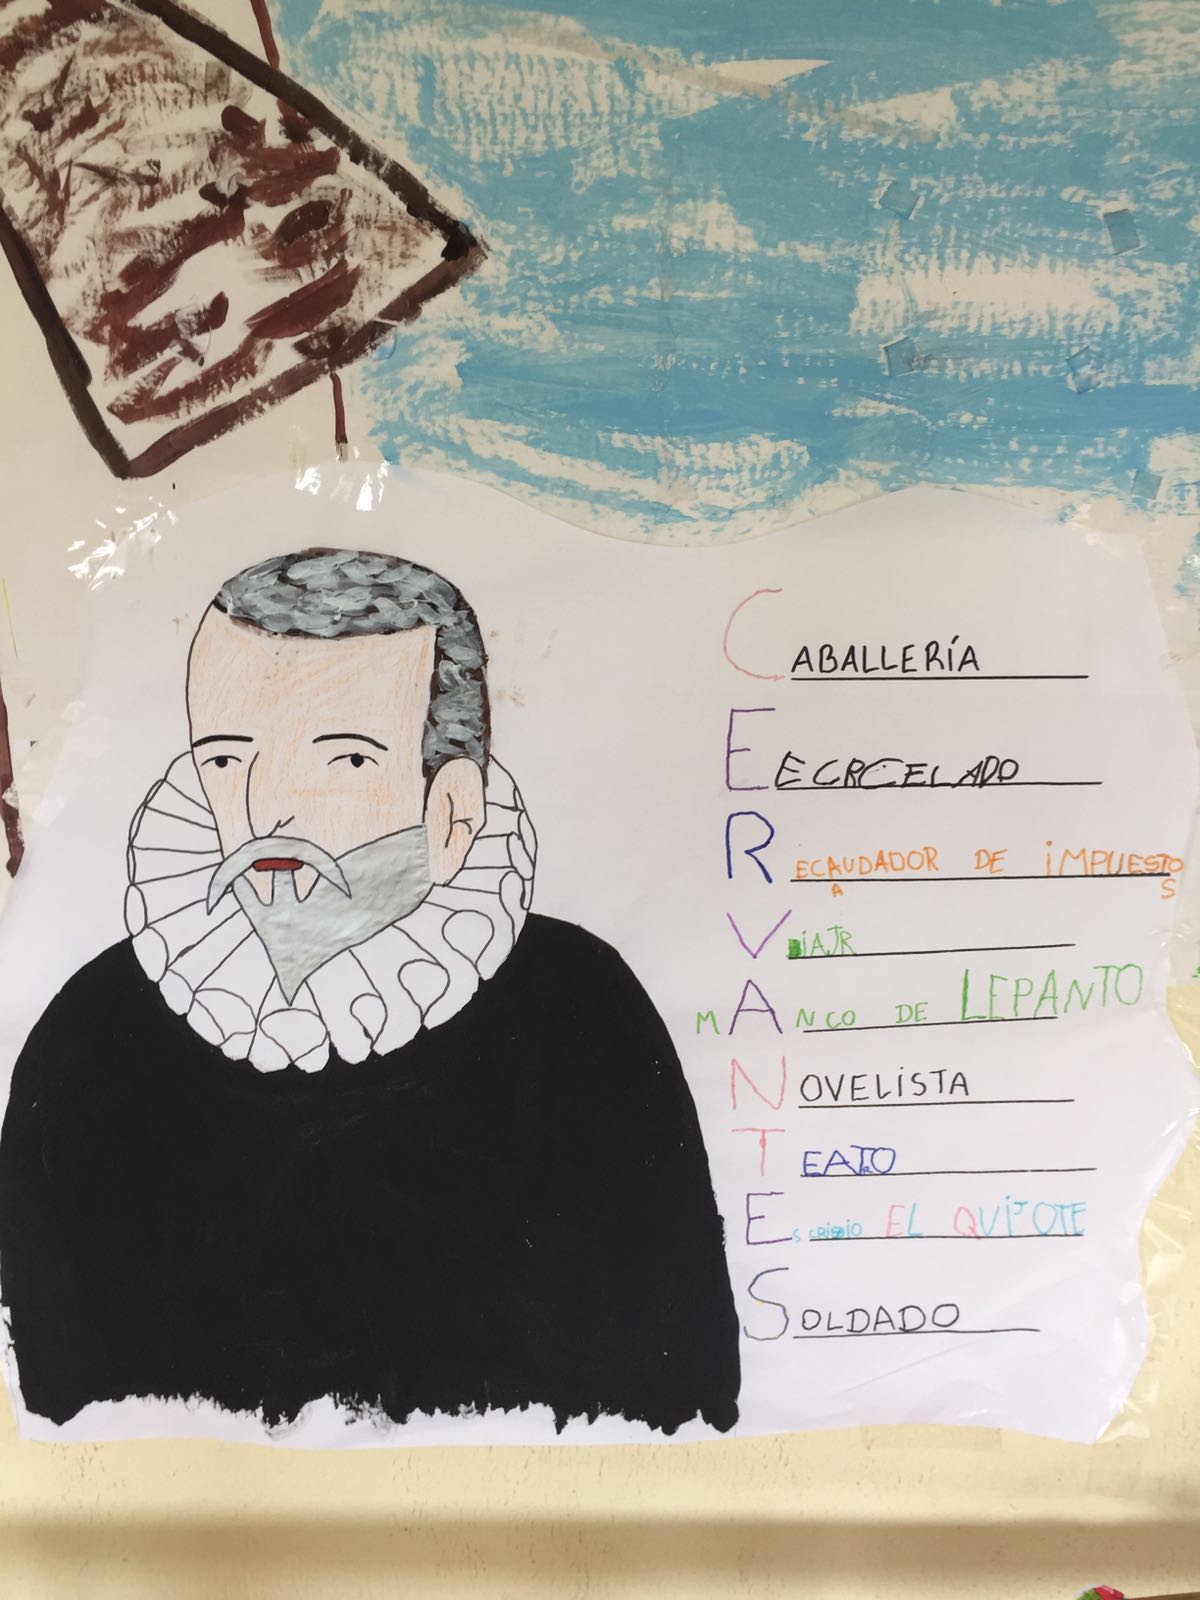 CABALLERÍA
EECRCELADO
RECAUDADOR DE iMPUESTO
A S
ViAJR
MANCO DE LEPANTO
NOVELiSTA
TEATRO
ESCRIBIO EL QUiJOTE
SOLDADO